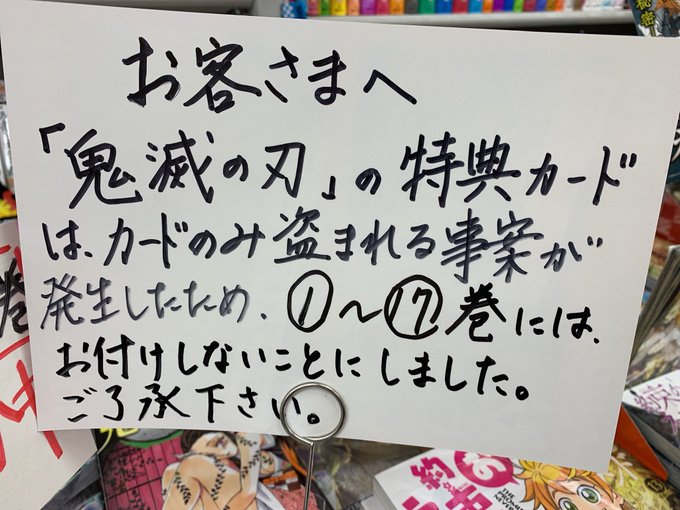 お客さまへ
「鬼滅の刃」の特典カード
は、カードのみ盗まれる事案が
発生したため、①〜⑰巻には、
お付けしないことにしました。
ご了承下さい。
巻
約束
THE PROMISED NEVERLAND